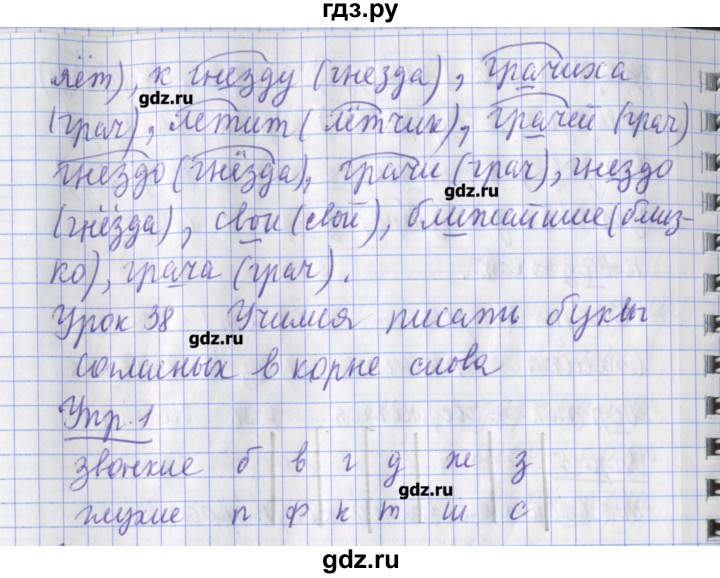 гдз.ру
лёт), к гнезду (гнезда), грачиха
gdz.ru
(грач), летит (лётчик), грачей (грач)
гнездо (гнёзда), грачи (грач), гнездо
gdz.ru
(гнёзда), свои (свой), ближайшие (близ-
ко), грача (грач).
Урок 38 Учимся писать буквы
gdz.ru
согласных в корне слова
Упр. 1
звонкие б в г д ж з
gdz.ru
глухие п ф к т ш с
gdz.ru